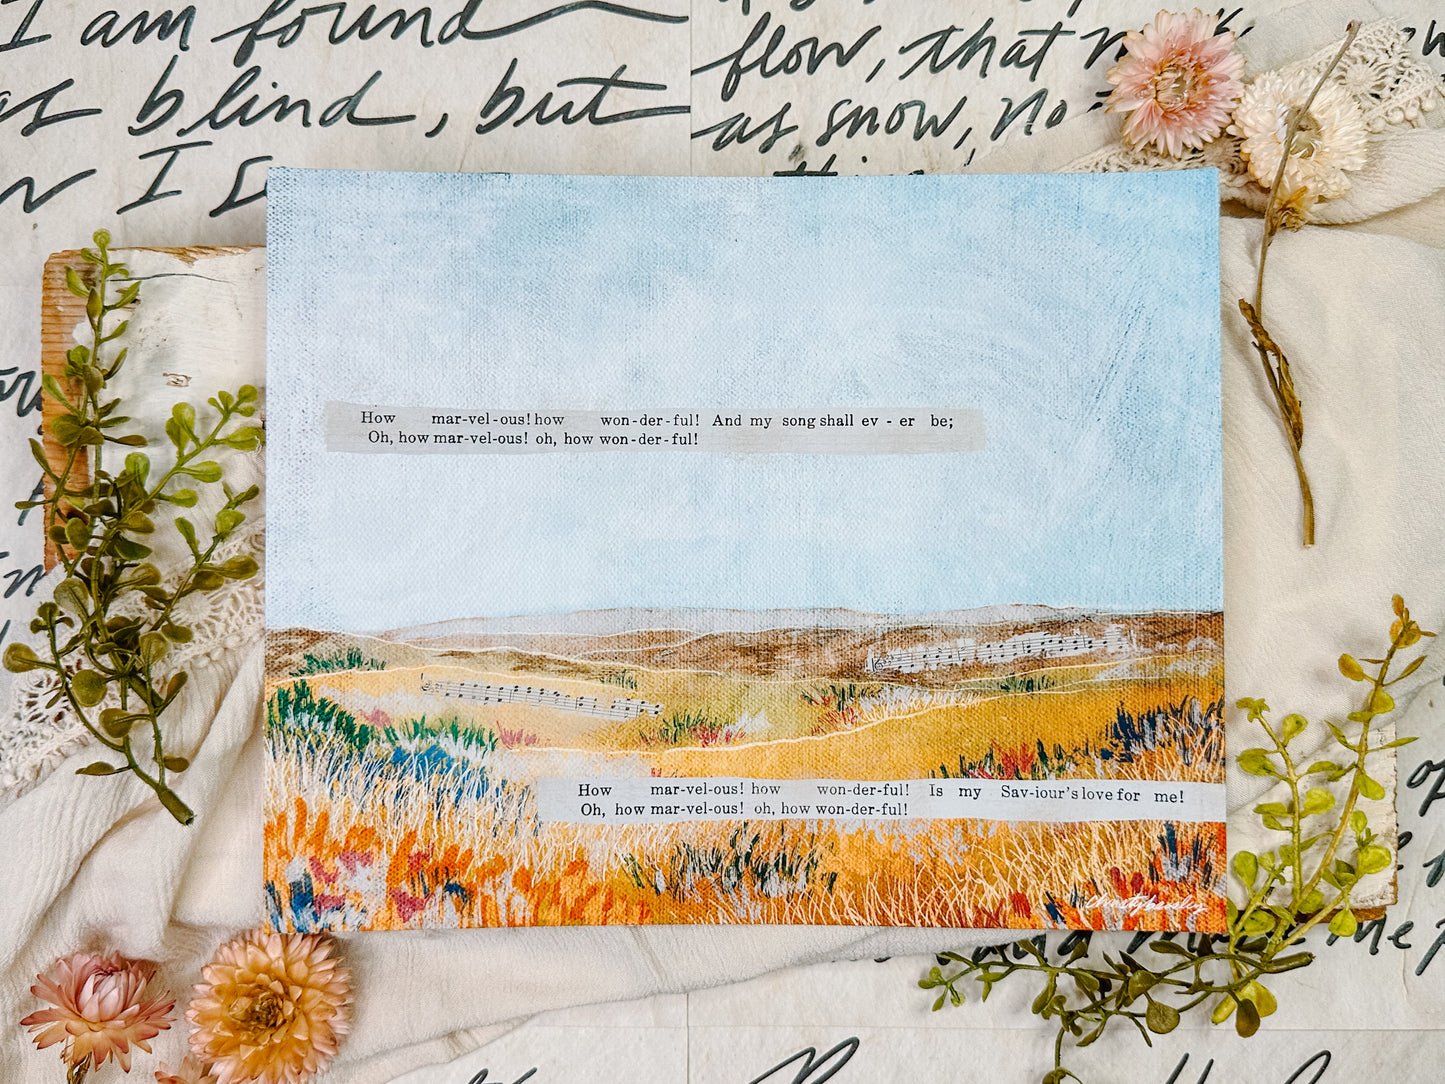 I am found
as blind, but
I
flow, that
as snow, no
How mar-vel-ous! how won-der-ful! And my song shall ev - er be;
Oh, how mar-vel-ous! oh, how won-der-ful!
How mar-vel-ous! how won-der-ful! Is my Sav-iour's love for me!
Oh, how mar-vel-ous! oh, how won-der-ful!
christybeasley
me